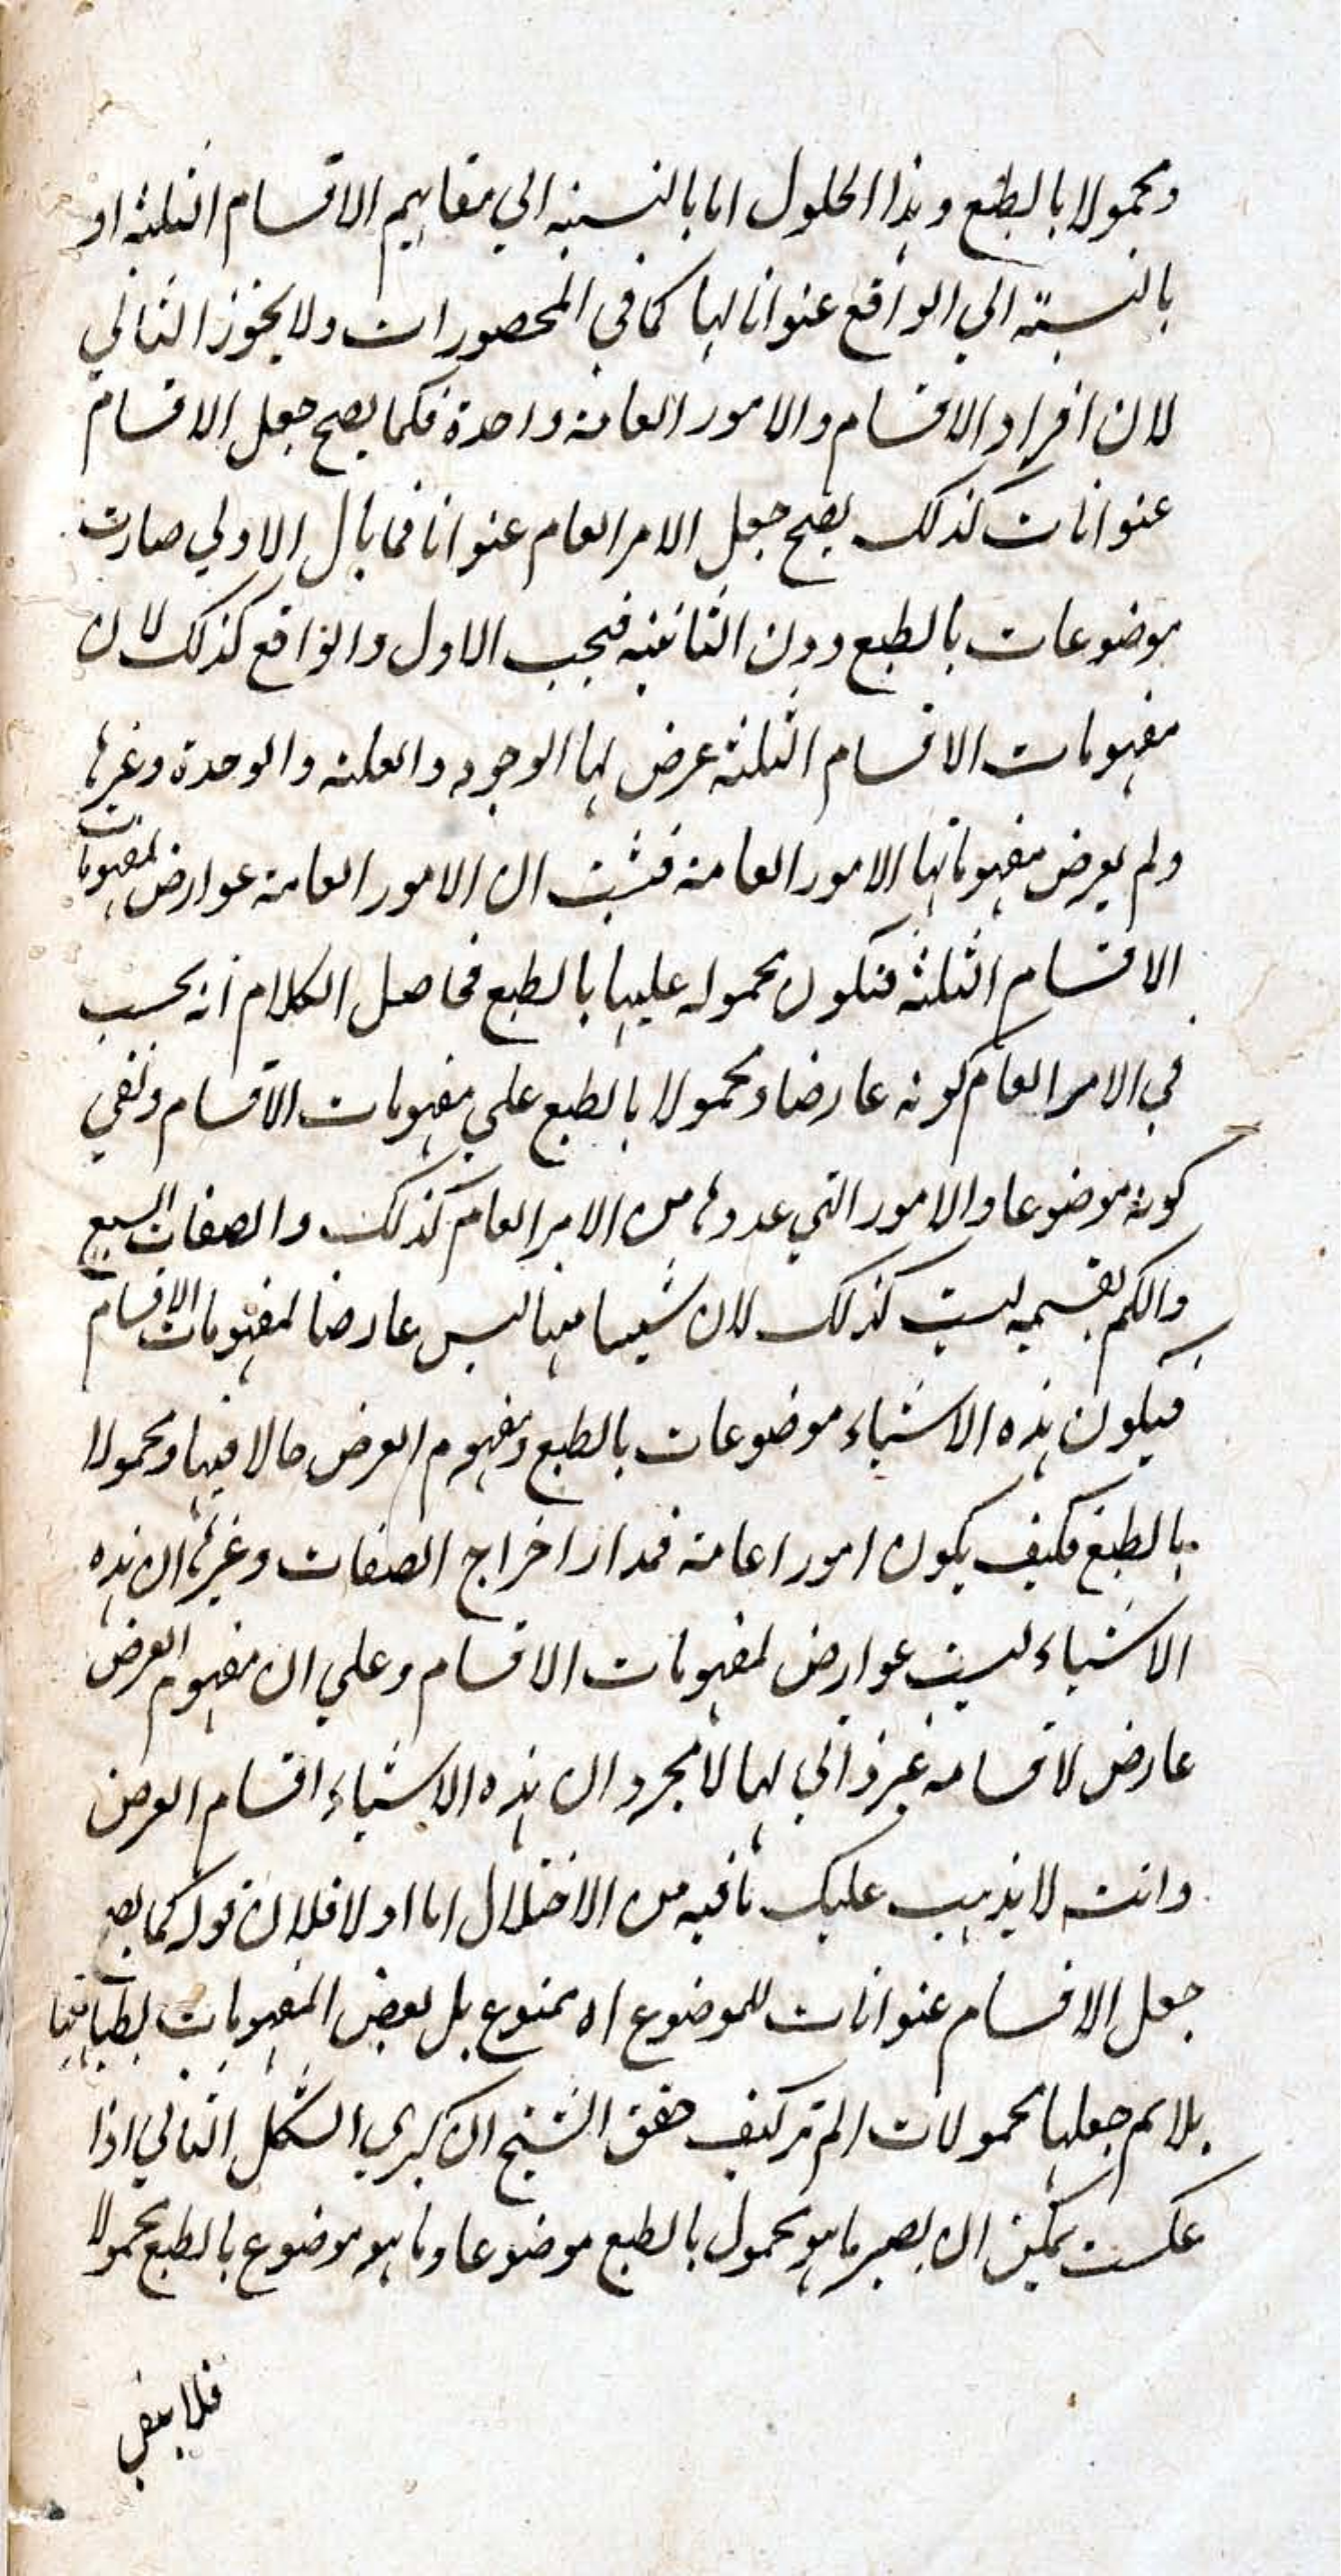 ومحمولا بالطبع وهذا الحلول اما بالنسبة الي مفاهيم الاقسام الثلثة او
بالنسبة الي الواقع عنوانا لها كما في المحصورات ولا يجوز الثاني
لان افراد الاقسام والامور العامة واحدة فكما يصح جعل الاقسام
عنوانات كذلك يصح جعل الامر العام عنوانا فما بال الاولي صارت
موضوعات بالطبع دون الثانية فيجب الاول والواقع كذلك لان
مفهومات الاقسام الثلثة عرض لها الوجود والعلية والوحدة وغيرها
ولم يعرض مفهوماتها الامور العامة فثبت ان الامور العامة عوارض لمفهومات
الاقسام الثلثة فتكون محموله عليها بالطبع فحاصل الكلام انه يحسب
في الامر العام كونه عارضا ومحمولا بالطبع علي مفهومات الاقسام ونفي
كونه موضوعا والامور التي عدوها من الامر العام كذلك والصفات السبع
والكم بقسميه ليست كذلك لان شيئا منها ليس عارضا لمفهومات الاقسام
فيكون هذه الاشياء موضوعات بالطبع ومفهوم العرض حالا فيها ومحمولا
بالطبع فكيف يكون امورا عامة فمدار اخراج الصفات وغيرها ان هذه
الاشياء ليست عوارض لمفهومات الاقسام وعلي ان مفهوم العرض
عارض لاقسامه غير ذاتي لها لا مجرد ان هذه الاشياء اقسام العرض
وانت لا يذهب عليك ما فيه من الاختلال اما اولا فلان قوله كما يصح
جعل الاقسام عنوانات للموضوع اه ممنوع بل بعض المفهومات بطبايعها
يلايم جعلها محمولات الم تر كيف حقق الشيخ ان كبري الشكل الثاني اذا
عكست يمكن ان يصير ما هو محمول بالطبع موضوعا وما هو موضوع بالطبع محمولا
فلا ينفي